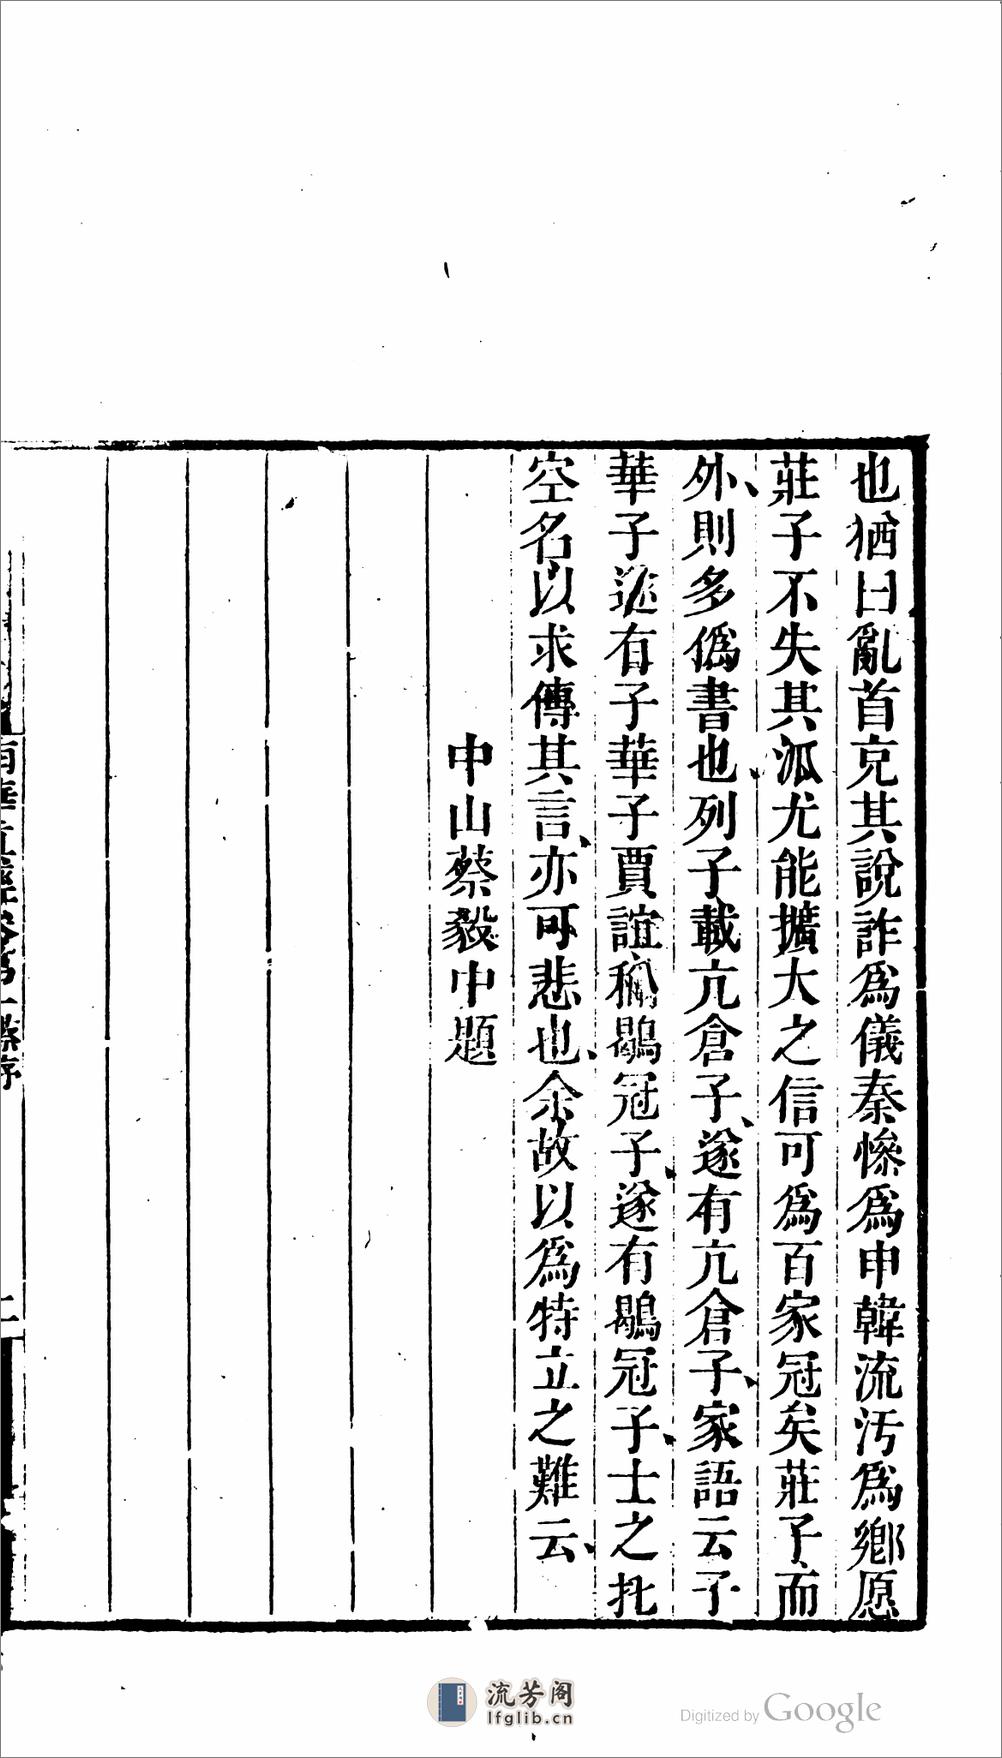 也猶曰亂首亰其說詐爲儀秦慘爲申韓流汚爲鄉愿
莊子不失其派尤能擴大之信可爲百家冠矣莊子而
外則多僞書也列子載亢倉子遂有亢倉子家語云子
華子遂有子華子賈誼稱鶡冠子遂有鶡冠子士之托
空名以求傳其言亦可悲也余故以爲特立之難云
中山蔡毅中題
南華眞經
蔡序
二
流芳阁
lfglib.cn
Digitized by Google